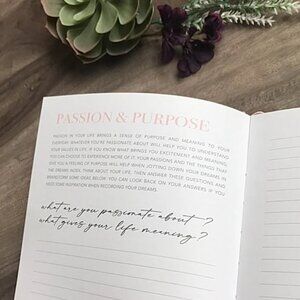 PASSION & PURPOSE
PASSION IN YOUR LIFE BRINGS A SENSE OF PURPOSE AND MEANING TO YOUR
EVERYDAY. WHATEVER YOU'RE PASSIONATE ABOUT WILL HELP YOU TO UNDERSTAND
YOUR VALUES IN LIFE. IF YOU KNOW WHAT BRINGS YOU EXCITEMENT AND MEANING,
YOU CAN CHOOSE TO EXPERIENCE MORE OF IT. YOUR PASSIONS AND THE THINGS THAT
GIVE YOU A FEELING OF PURPOSE WILL HELP WHEN JOTTING DOWN YOUR DREAMS IN
THE DREAMS INDEX. THINK ABOUT YOUR LIFE, THEN ANSWER THESE QUESTIONS AND
BRAINSTORM SOME IDEAS BELOW. YOU CAN LOOK BACK ON YOUR ANSWERS IF YOU
NEED SOME INSPIRATION WHEN RECORDING YOUR DREAMS.
what are you passionate about?
what gives your life meaning?